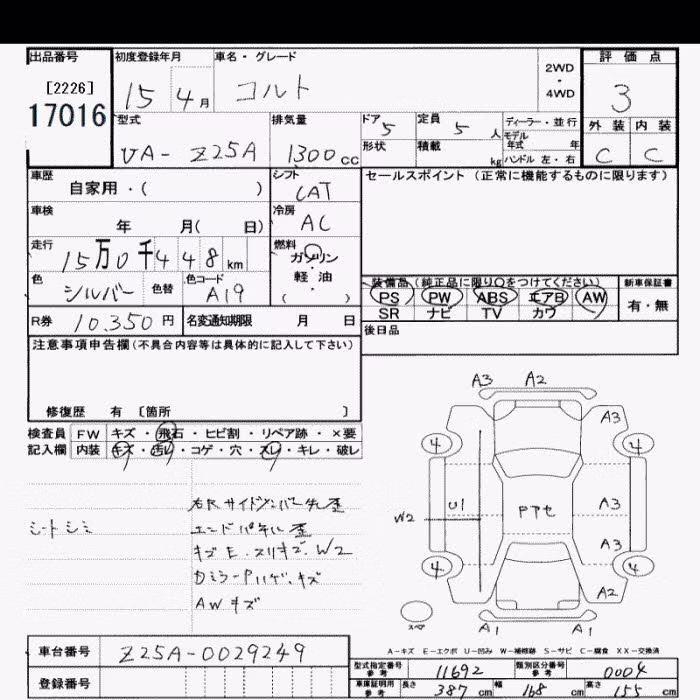 出品番号 初度登録年月 車名・グレード 評価点
[2226] 15 4月 コルト 2WD・4WD 3
17016 外装 内装
型式 排気量 ドア 5 定員 5人 ディーラー・並行 C C
UA- Z25A 1300cc 形状 積載 kg モデル年式 年
ハンドル 左・右
車歴 シフト セールスポイント (正常に機能するものに限ります)
自家用・( ) CAT
車検 冷房
年 月( 日) AC
走行 燃料
15万0千448km ガソリン・軽油
色 シルバー 色替 色コード A19 ( )
装備品 (純正品に限り○をつけてください) 新車保証書
PS PW ABS エアB AW 有・無
SR ナビ TV カワ
R券 10,350円 名変通知期限 月 日
後日品
注意事項申告欄(不具合内容等は具体的に記入して下さい)
修復歴 有 [箇所 ]
検査員 FW キズ・飛石・ヒビ割・リペア跡・×要
記入欄 内装 キズ・汚レ・コゲ・穴・スレ・キレ・破レ
右Rサイドメンバー先歪
シートシミ エンドパネル歪
キズE・スリキズ・W2
AWキズ
A3 A2
A3
4 4
U1 PアセA3
W2
A3
4 4
A2
スペア
A1 A1
A-キズ E-エクボ U-凹み W-補修跡 S-サビ C-腐食 XX-交換済
車台番号 Z25A-0029249
登録番号
型式指定番号 参考 11692 類別区分番号 参考 0004
車庫証明用 参考 長さ 387cm 幅 168cm 高さ 155cm